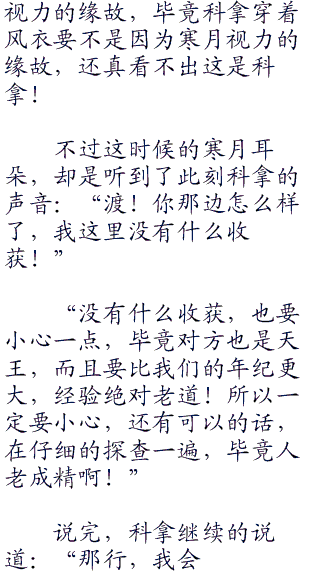 视力的缘故，毕竟科拿穿着
风衣要不是因为寒月视力的
缘故，还真看不出这是科
拿！
不过这时候的寒月耳
朵，却是听到了此刻科拿的
声音：“渡！你那边怎么样
了，我这里没有什么收
获！”
“没有什么收获，也要
小心一点，毕竟对方也是天
王，而且要比我们的年纪更
大，经验绝对老道！所以一
定要小心，还有可以的话，
在仔细的探查一遍，毕竟人
老成精啊！”
说完，科拿继续的说
道：“那行，我会